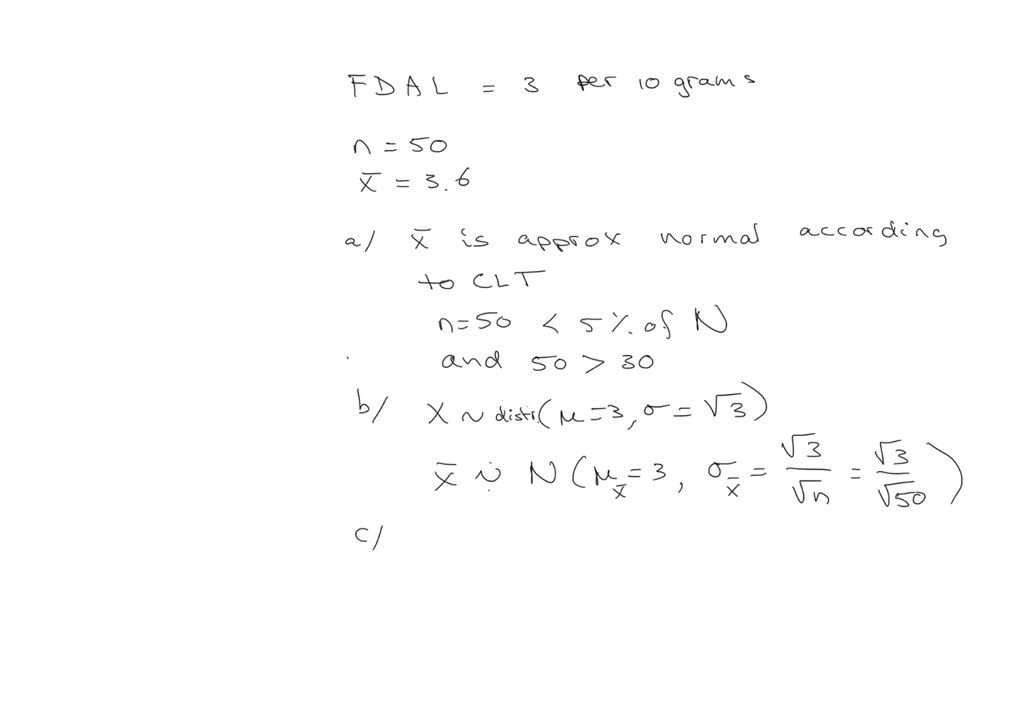 FDAL = 3 per 10 grams
n = 50
x̄ = 3.6
a/ x̄ is approx normal according
to CLT
n=50 < 5% of N
and 50 > 30
b/ X ~ distr(μ=3, σ=√3)
x̄ ~̇ N(μ_x̄=3, σ_x̄ = √3/√n = √3/√50)
c/